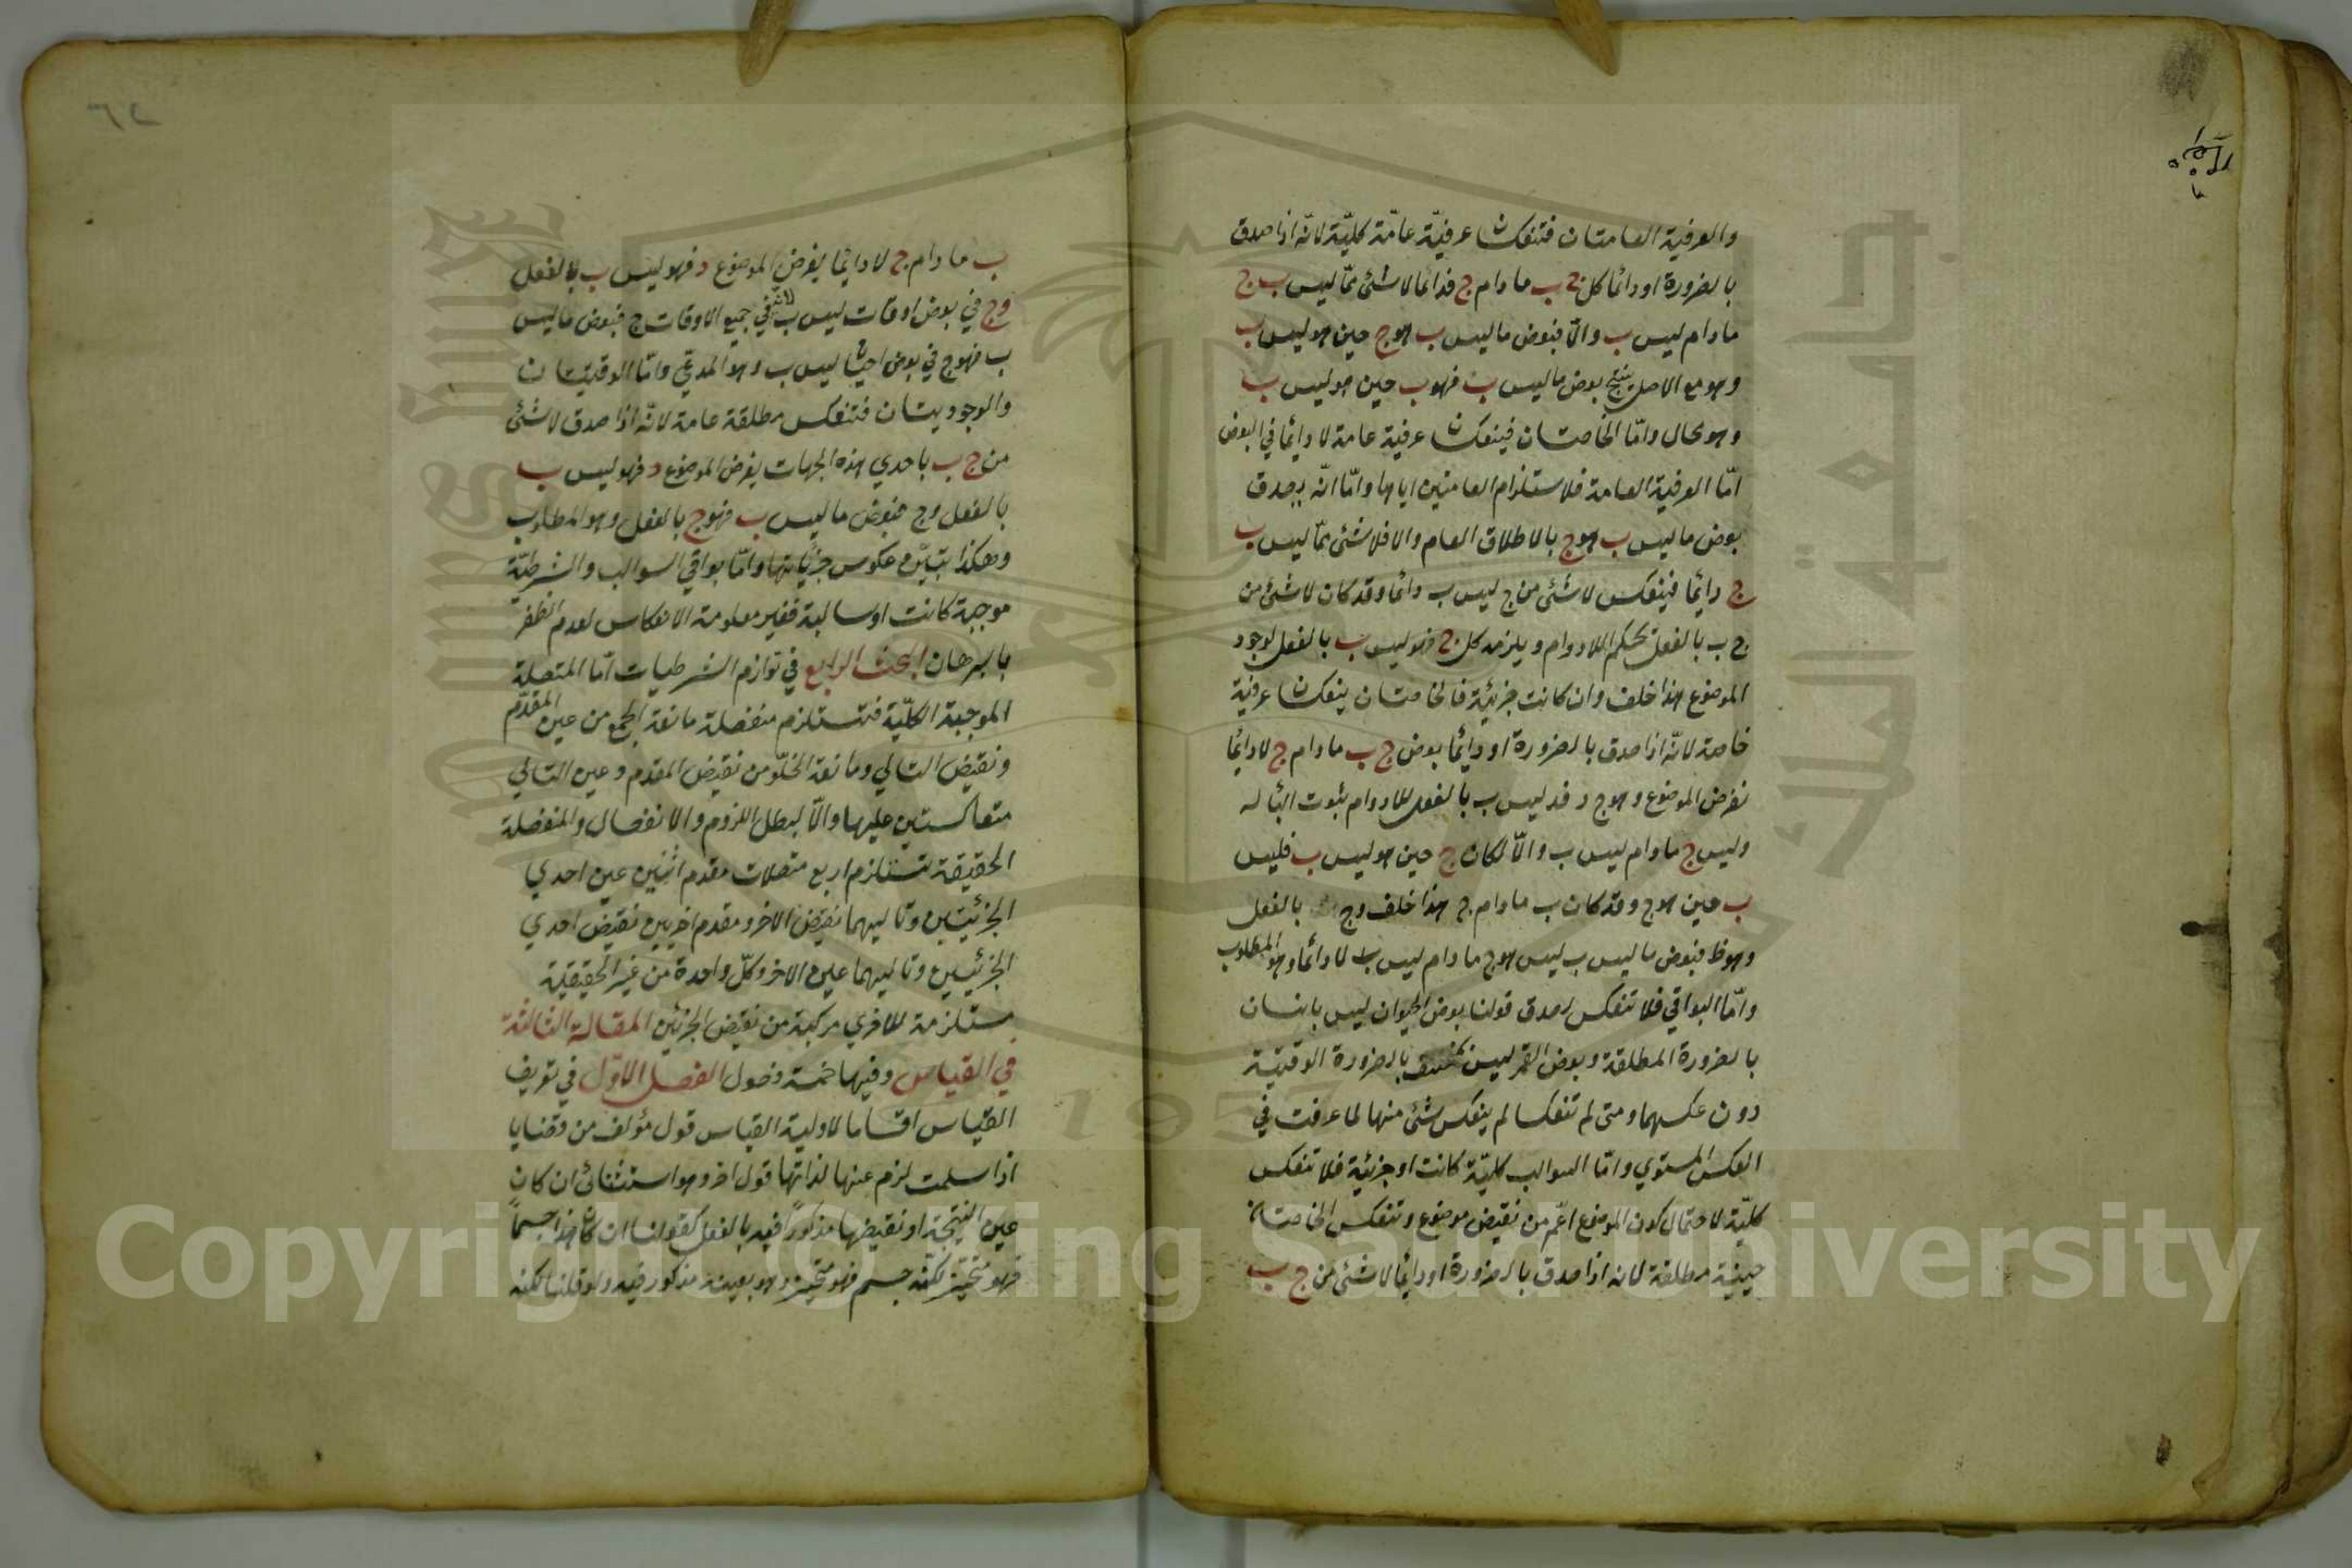 والعرفية العامتان فتنعكسان عرفيّة عامّة كليّة لانّه اذا صدق
بالضرورة او دائما كل ج ب ما دام ج فدائما لا شئ ممّا ليس ب ج
ما دام ليس ب والّا فبعض ما ليس ب هو ج حين هو ليس ب
وهو مع الاصل ينتج بعض ما ليس ب فهو ب حين هو ليس ب
وهو محال وامّا الخاصتان فينعكسان عرفية عامة لا دائما في البعض
امّا العرفية العامة فلاستلزام العامتين اياها وامّا انّه يصدق
بعض ما ليس ب هو ج بالاطلاق العام والا فلا شئ ممّا ليس ب
ج دائما فينعكس لا شئ من ج ليس ب دائما وقد كان لا شئ من
ج ب بالفعل بحكم اللادوام ويلزمه كل ج فهو ليس ب بالفعل لوجود
الموضوع هذا خلف وان كانت جزئية فالخاصتان ينعكسان عرفية
خاصة لانّه اذا صدق بالضرورة او دائما بعض ج ب ما دام ج لا دائما
نفرض الموضوع وهو ج د فد ليس ب بالفعل للادوام بثوت البا له
وليس ج ما دام ليس ب والّا لكان ج حين هو ليس ب فليس
ب حين هو ج وقد كان ب ما دام ج هذا خلف وج بالفعل
وهو ظ فبعض ما ليس ب ليس هو ج ما دام ليس ب لا دائما وهو المطلوب
وامّا البواقي فلا تنعكس لصدق قولنا بعض الحيوان ليس بانسان
بالضرورة المطلقة وبعض القمر ليس بمنخسف بالضرورة الوقتية
دون عكسهما ومتى لم تنعكسا لم ينعكس شئ منها لما عرفت في
العكس المستوي وامّا السوالب كليّة كانت او جزئية فلا تنعكس
كليّة لاحتمال كون الموضوع اعّم من نقيض موضوع وتنعكس الخاصتان
حينية مطلقة لانه اذا صدق بالضرورة او دائما لا شئ من ج ب
٦٢
ب ما دام ج لا دائما يفرض الموضوع د فهو ليس ب بالفعل
وج في بعض اوقات ليس ب لانه في جميع الاوقات ج فبعض ما ليس
ب فهو ج في بعض احيان ليس ب وهو المدعي وامّا الوقتيتان
والوجوديتان فتنعكس مطلقة عامة لانّه اذا صدق لا شئ
من ج ب باحدي هذه الجهات يفرض الموضوع د فهو ليس ب
بالفعل وج فبعض ما ليس ب فهو ج بالفعل وهو المطلوب
وهكذا يتبيّن عكوس جزئياتها وامّا بواقي السوالب والشرطيّة
موجبة كانت او سالبة فغير معلومة الانعكاس لعدم الظفر
بالبرهان البحث الرابع في توازم الشرطيات امّا المتصلة
الموجبة الكلّية فتستلزم منفصلة مانعة الجمع من عين المقدّم
ونقيض التالي ومانعة الخلّو من نقيض المقدم وعين التالي
متعاكستين عليها والّا لبطل اللزوم والانفصال والمنفصلة
الحقيقة تستلزم اربع متصلات مقدم اثنين عين احدي
الجزئيتين وتاليهما نقيض الاخر ومقدم اخريين نقيض احدي
الجزئيين وتاليهما عين الاخر وكلّ واحدة من غير الحقيقية
مستلزمة للاخري مركبة من نقيض الجزئين المقالة الثالثة
في القياس وفيها خمسة فصول الفصل الاوّل في تعريف
القياس اقساما لاولية القياس قول مؤلف من قضايا
اذا سلمت لزم عنها لذاتها قول اخر وهو استثنائي ان كان
عين النتيجة او نقيضها مذكوراً فيه بالفعل كقولنا ان كان هذا جسماً
فهو متحيّز لكنّه جسم فهو متحيّز وهو بعينه مذكور فيه ولو قلنا لكنه
Copyright © King Saud University
1957